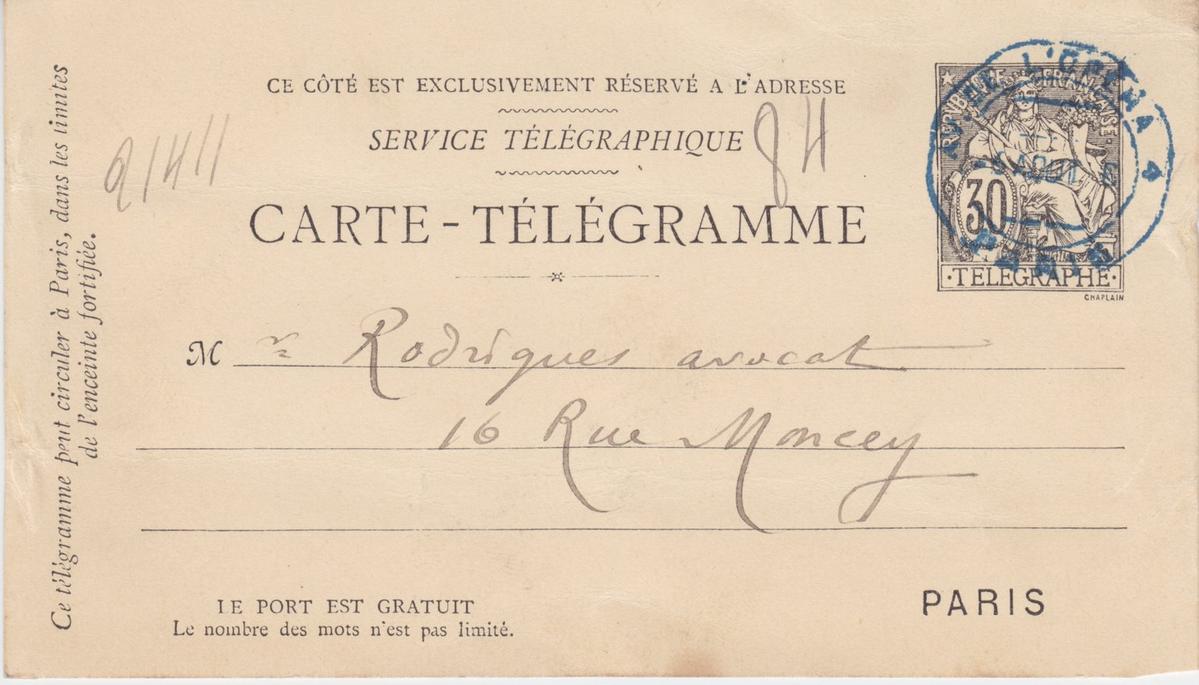 CE CÔTÉ EST EXCLUSIVEMENT RÉSERVÉ A L'ADRESSE
SERVICE TÉLÉGRAPHIQUE
84
21411
CARTE-TÉLÉGRAMME
RÉPUBLIQUE FRANÇAISE
30
·TÉLÉGRAPHE·
CHAPLAIN
L'OPERA 4
PARIS
M r Rodrigues avocat
16 Rue Moncey
PARIS
LE PORT EST GRATUIT
Le nombre des mots n'est pas limité.
Ce télégramme peut circuler à Paris, dans les limites
de l'enceinte fortifiée.